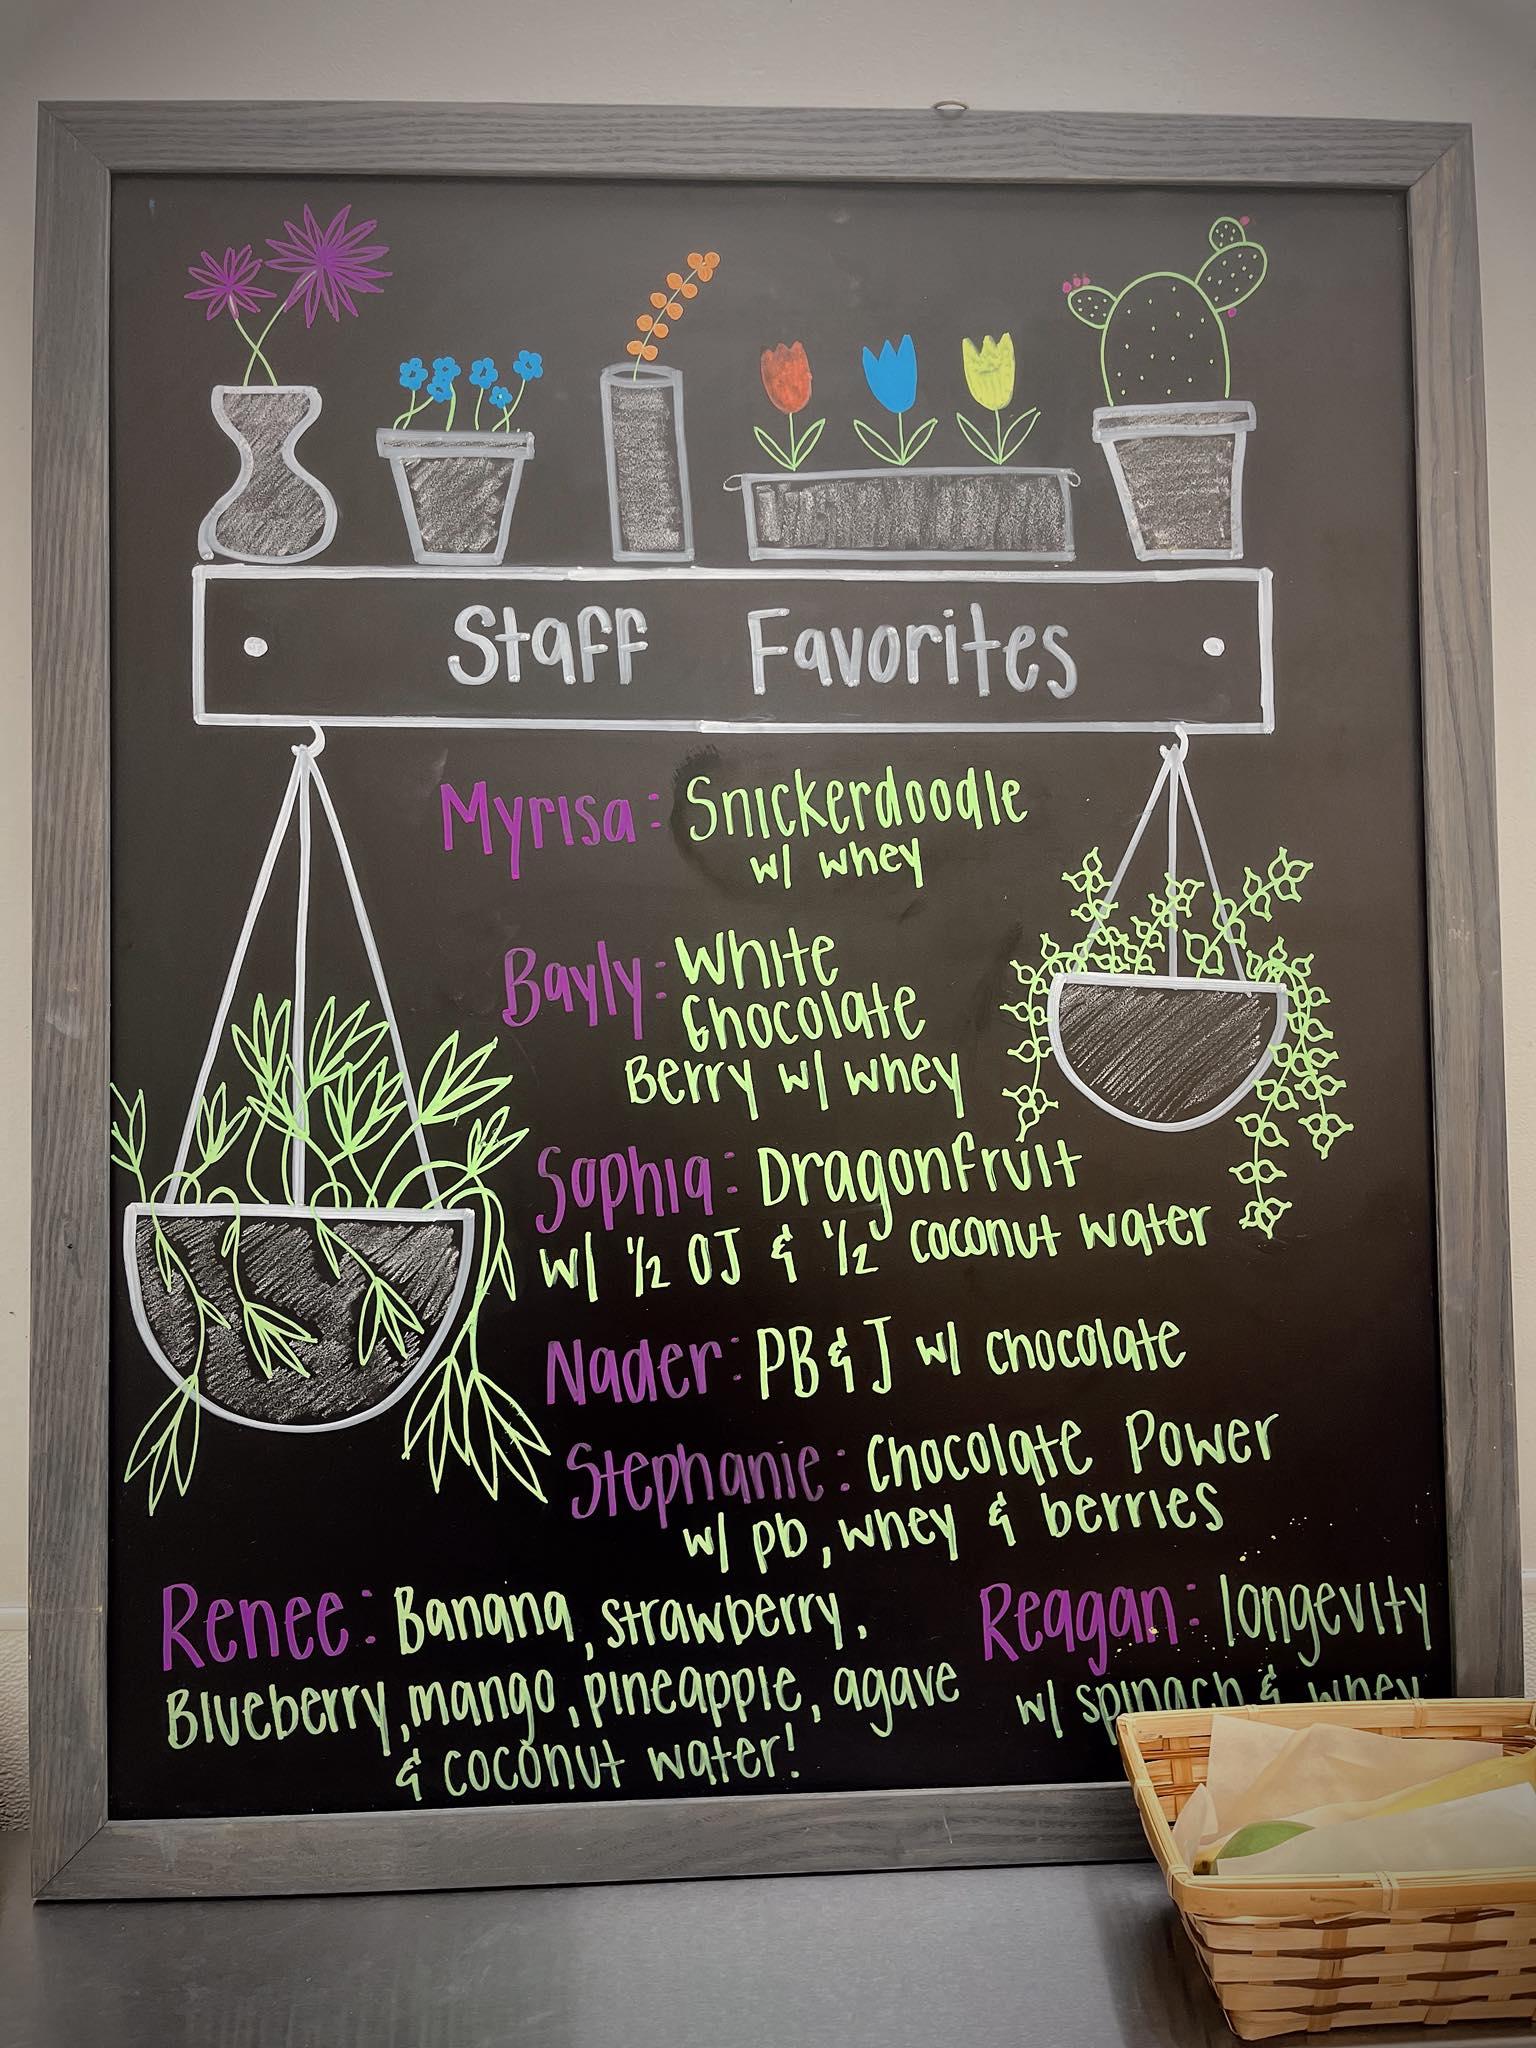 Staff Favorites
Myrisa: Snickerdoodle
w/ whey
Bayly: White
Chocolate
Berry w/ whey
Sophia: Dragonfruit
w/ 1/2 OJ & 1/2 coconut water
Nader: PB&J w/ chocolate
Stephanie: Chocolate Power
w/ pb, whey & berries
Renee: Banana, strawberry,
Blueberry, mango, pineapple, agave
& coconut water!
Reagan: longevity
w/ spinach & whey